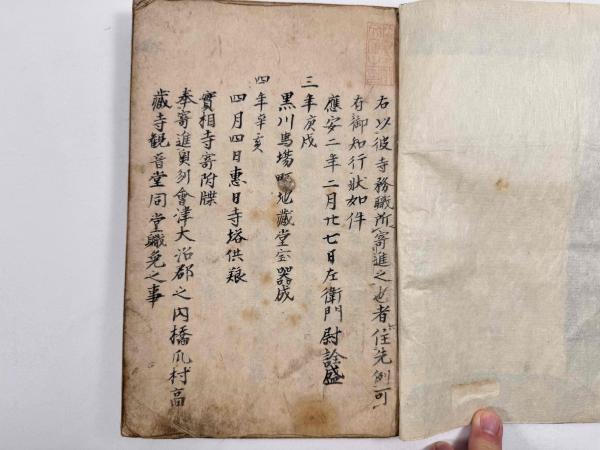 右以彼寺務職所寄進之也者任先例可
有御知行状如件
應安二年二月廿七日左衛門尉詮盛
三年庚戌
黒川馬場町地藏堂宝器成
四年辛亥
四月四日惠日寺塔供養
實相寺寄附牒
奉寄進奥州會津大沼郡之内橋爪村高
藏寺観音堂同堂職免之事